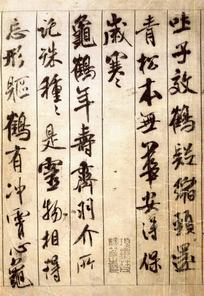 吐子效鶴疑縮頸還
青松本無華安得保
歲寒
龜鶴年壽齊羽介所
託殊種〻是靈物相得
忘形軀鶴有沖霄心龜